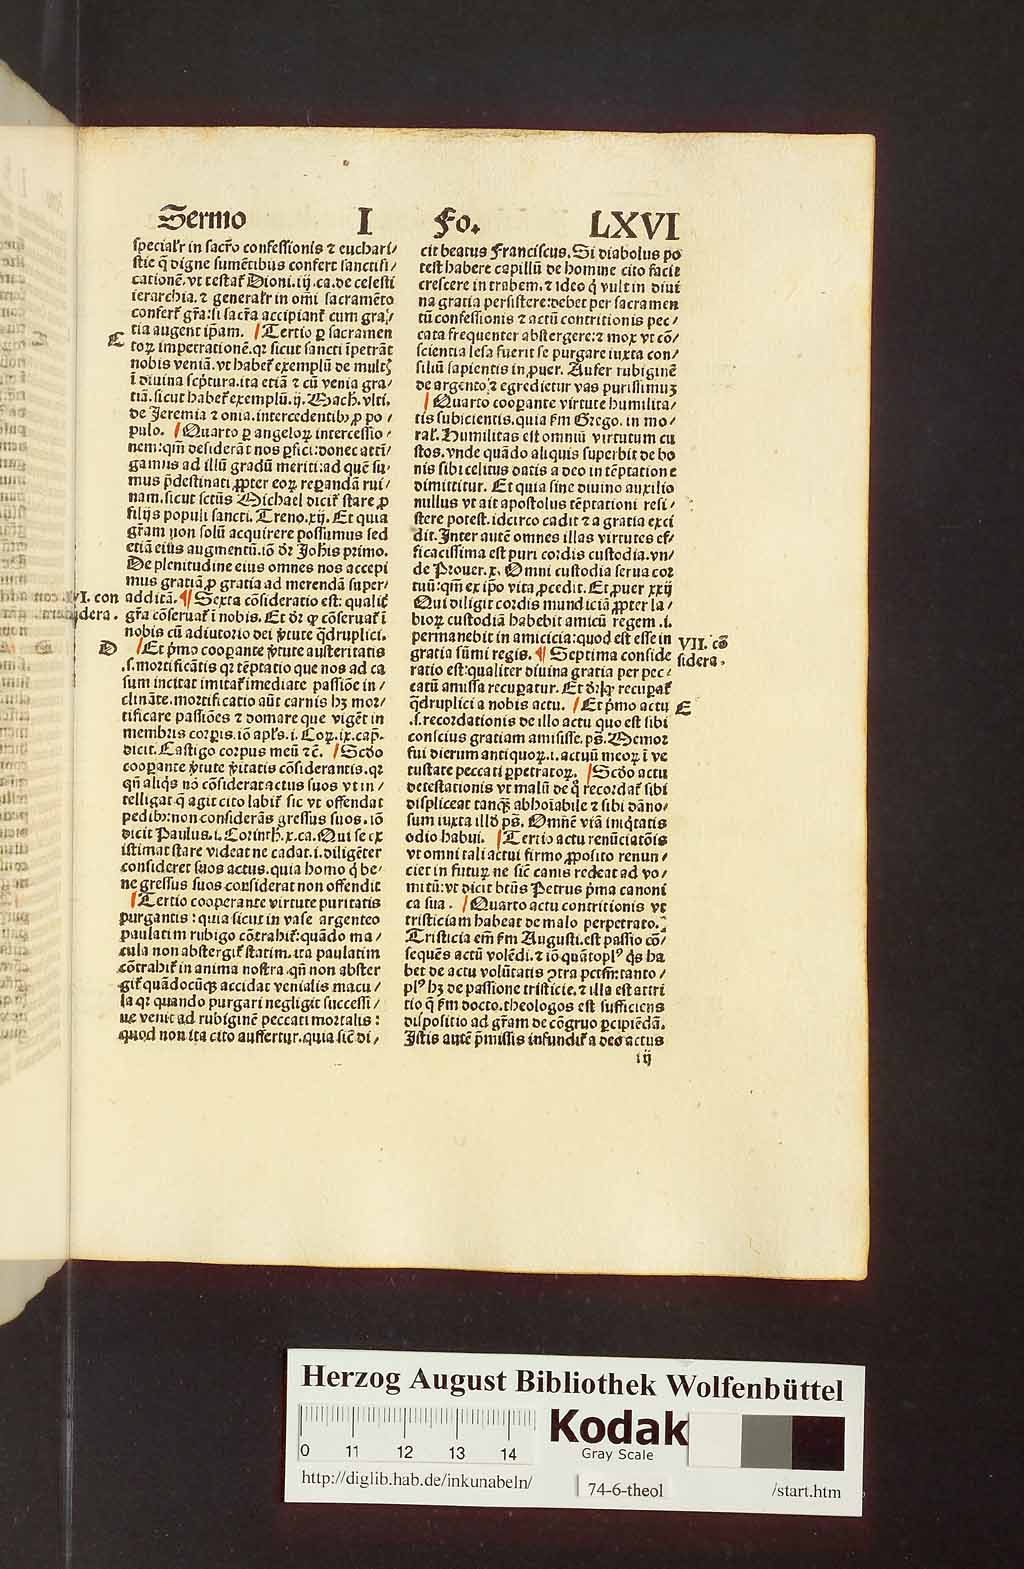 Sermo I Fo. LXVI
specialr̃ in sacrõ confessionis ⁊ euchari/
stie q̃ digne sumẽtibus confert sanctifi/
cationẽ. vt testat̃ Dioni. iij. ca. de celesti
ierarchia. ⁊ generalr̃ in omĩ sacramẽto
confert̃ gr̃a: si sacr̃a accipiant̃ cum gra/
tia augent ip̃am. Tertio ꝑ sacramen
C
toꝝ impetrationẽ. qꝛ sicut sancti ĩpetrãt
nobis veniã. vt habet̃ exemplũ de multꝭ
ĩ diuina scp̃tura. ita etiã ⁊ cũ venia gra/
tiã. sicut habet̃ exemplũ. ij. Mach̃. vlti.
de Jeremia ⁊ onia. intercedentibꝰ ꝓ po/
pulo. Quarto ꝑ angeloꝝ intercessio/
nem: qm̃ desiderãt nos ꝑfici: donec attĩ/
gamus ad illũ gradũ meriti: ad quẽ su/
mus p̃destinati. ꝓpter eoꝝ reꝑandã rui/
nam. sicut sctũs Michael dicit̃ stare ꝓ
filijs populi sancti. Treno. xij. Et quia
gr̃am non solũ acquirere possumus sed
etiã eius augmentũ. iõ dr̃ Joh̃is primo.
De plenitudine eius omnes nos accepi
mus gratiã ꝓ gratia ad merendã super/
additã. ¶ Sexta cõsideratio est: qualit̃
VI. con
sidera.
gr̃a cõseruat̃ ĩ nobis. Et dr̃ ꝙ cõseruat̃ ĩ
nobis cũ adiutorio dei v̓tute q̃druplici.
D
Et p̃mo cooꝑante v̓tute austeritatis
.s. mortificãtis qꝛ tẽptatio que nos ad ca
sum incitat imitat̃ imediate passiõe in/
clinãte. mortificatio aũt carnis hꝫ mor/
tificare passiões ⁊ domare que vigẽt in
membris corꝑis. iõ apl̃s. i. Coꝝ. ix. cap̃.
dicit. Castigo corpus meũ ⁊c̃. Scd̃o
cooꝑante v̓tute v̓itatis cõsiderantis. qꝛ
qñ aliq̃s nõ cõsiderat actus suos vt in/
telligat q̃ agit cito labit̃ sic vt offendat
pedibꝰ: non considerãs gressus suos. iõ
dicit Paulus. i. Corinth̃. x. ca. Qui se ex
istimat stare videat ne cadat. i. diligẽter
consideret suos actus. quia homo q̃ be/
ne gressus suos considerat non offendit
Tertio cooperante virtute puritatis
purgantis: quia sicut in vase argenteo
paulatim rubigo cõtrahit̃: quãdo ma/
cula non abstergit̃ statim. ita paulatim
cõtrahit̃ in anima nostra. qñ non abster
git̃ quãdocũqꝫ accidat venialis macu/
la qꝛ quando purgari negligit successi/
ue venit ad rubiginẽ peccati mortalis:
quod non ita cito auffertur. quia sic̃ di/
cit beatus Franciscus. Si diabolus po
test habere capillũ de homine cito facit
crescere in trabem. ⁊ ideo q̃ vult in diui
na gratia persistere: debet per sacramen
tũ confessionis ⁊ actũ contritionis pec/
cata frequenter abstergere: ⁊ mox vt cõ/
scientia lesa fuerit se purgare iuxta con/
siliũ sapientis in ꝓuer. Aufer rubiginẽ
de argento: ⁊ egredietur vas purissimuꝫ
Quarto cooꝑante virtute humilita/
tis subicientis. quia s̃m Grego. in mo/
ral̃. Humilitas est omniũ virtutum cu
stos. vnde quãdo aliquis superbit de bo
nis sibi celitus datis a deo in tẽptatione
dimittitur. Et quia sine diuino auxilio
nullus vt ait apostolus tẽptationi resi/
stere potest. idcirco cadit ⁊ a gratia exci
dit. Inter autẽ omnes illas virtutes ef/
ficacissima est puri cordis custodia. vn/
de Prouer. x. Omni custodia serua cor
tuũ: qm̃ ex ip̃o vita ꝓcedit. Et ꝓuer xxij
Qui diligit cordis mundiciã ꝓpter la/
bioꝝ custodiã habebit amicũ regem .i.
permanebit in amicicia: quod est esse in
gratia sũmi regis. ¶ Septima conside
VII. cõ
sidera.
ratio est: qualiter diuina gratia per pec/
catũ amissa recuꝑatur. Et dr̃ ꝙ recuꝑat̃
q̃druplici a nobis actu. Et p̃mo actu
E
.s. recordationis de illo actu quo est sibi
conscius gratiam amisisse. ps̃. Memor
fui dierum antiquoꝝ. i. actuũ meoꝝ ĩ ve
tustate peccati ꝑpetratoꝝ. Scd̃o actu
detestationis vt malũ de q̃ recordat̃ sibi
displiceat tanqꝫ abhoĩabile ⁊ sibi dãno/
sum iuxta illd̃ ps̃. Omnẽ viã iniq̃tatis
odio habui. Tertio actu renũciatõis
vt omni tali actui firmo ꝓposito renun/
ciet in futuꝝ ne sic̃ canis redeat ad vo/
mitũ: vt dicit btũs Petrus p̃ma canoni
ca sua. Quarto actu contritionis vt
tristiciam habeat de malo perpetrato.
Tristicia em̃ s̃m Augusti. est passio cõ/
sequẽs actũ volẽdi. ⁊ iõ quãtoplꝰ q̃s ha
bet de actu volũtatis ꝯtra pctm̃: tanto/
plꝰ hꝫ de passione tristicie. ⁊ illa est attri
tio q̃ s̃m docto. theologos est sufficiens
dispositio ad gr̃am de cõgruo ꝑcipiẽdã.
Istis autẽ p̃missis infundit̃ a deo actus
ij
Herzog August Bibliothek Wolfenbüttel
0 11 12 13 14
Kodak
Gray Scale
http://diglib.hab.de/inkunabeln/ 74-6-theol /start.htm